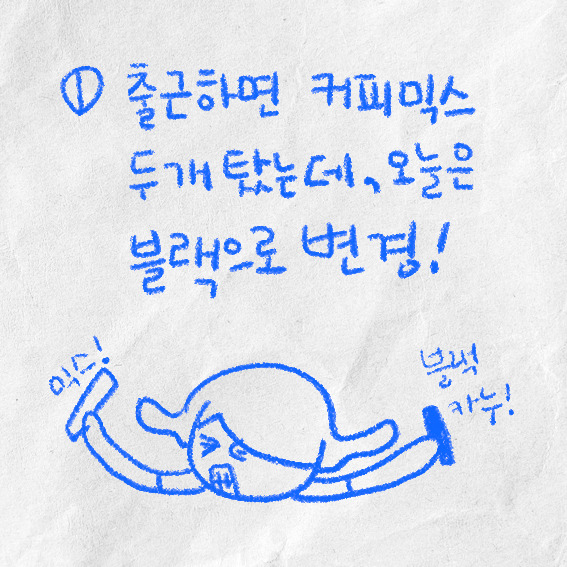 ① 출근하면 커피믹스
두개 탔는데, 오늘은
블랙으로 변경!
믹스!
블랙
카누!